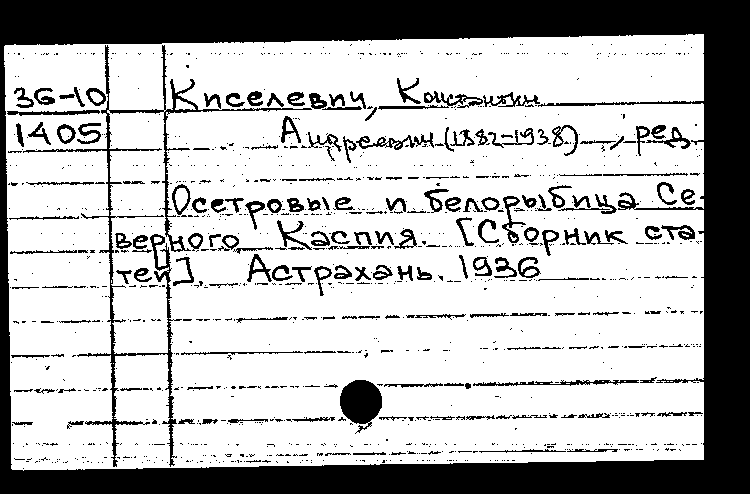 36-10 Киселевич, Константин
1405 Андреевич (1882-1938) , ред.
Осетровые и белорыбица Се-
верного Каспия. [Сборник ста-
тей]. Астрахань. 1936